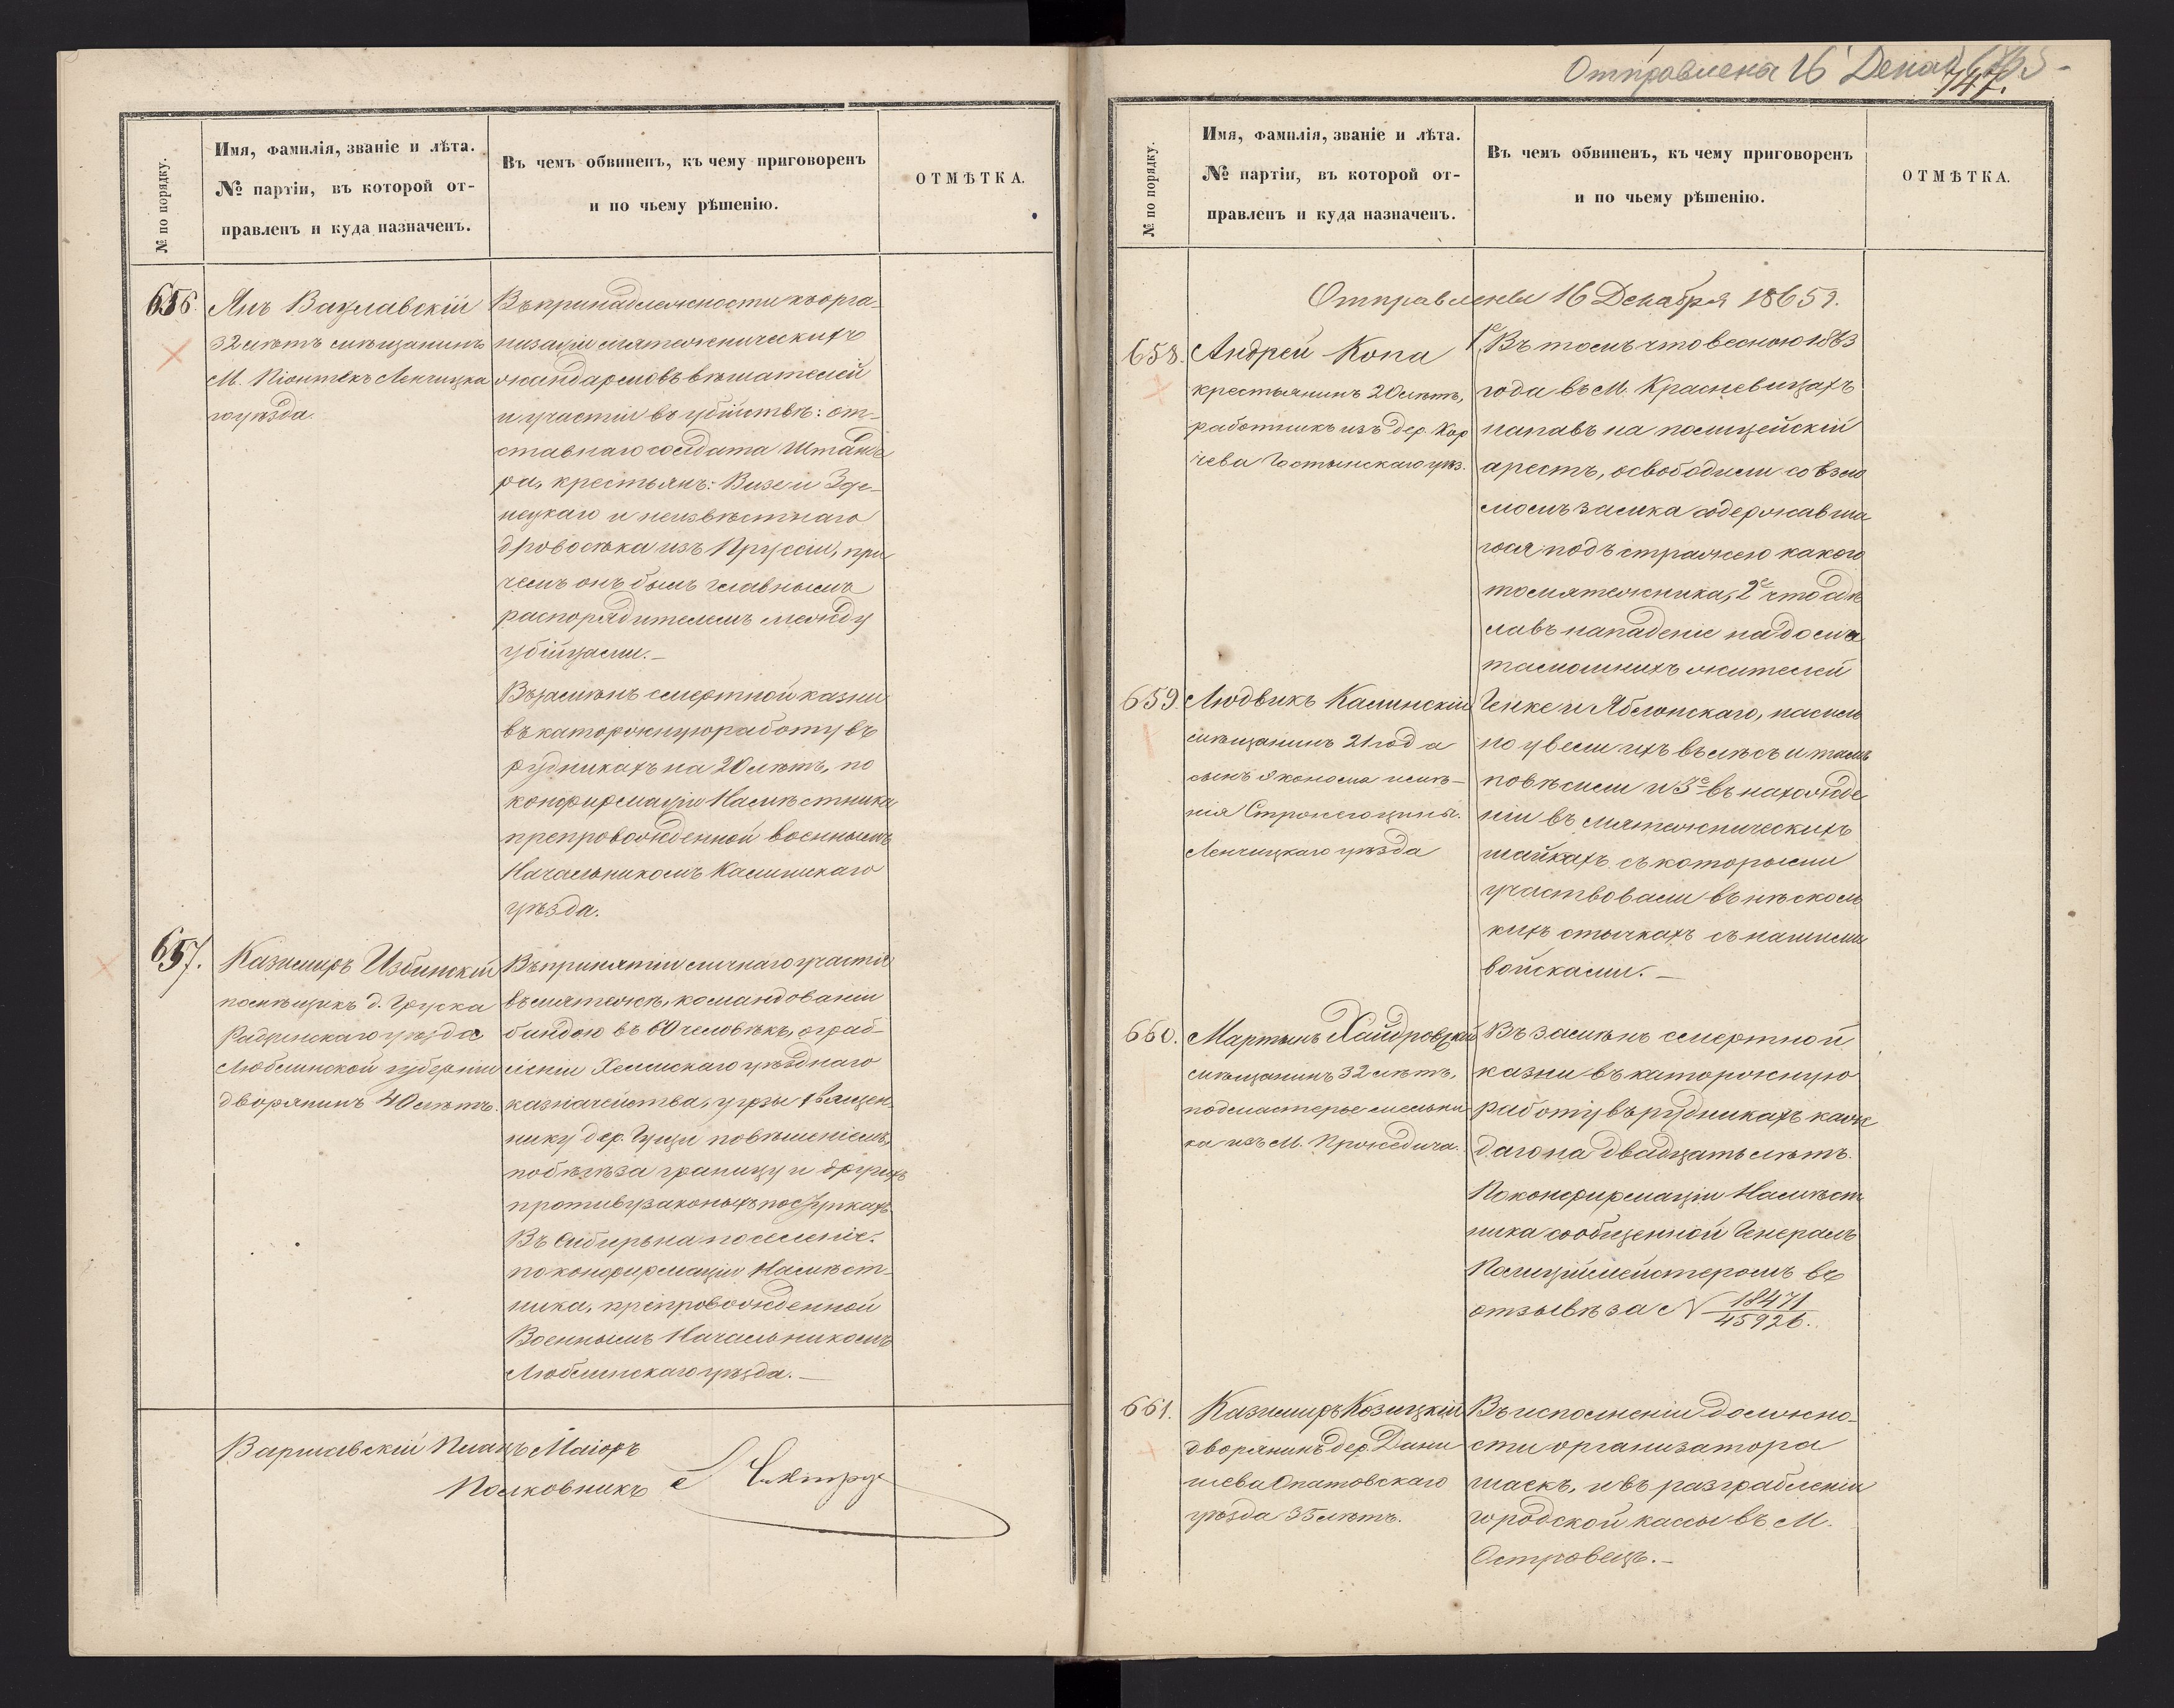 № по порядку.
Имя, фамилія, званіе и лѣта.
№ партіи, въ которой от-
правленъ и куда назначенъ.
Въ чемъ обвиненъ, къ чему приговоренъ
и по чьему рѣшенію.
ОТМѢТКА.
656.
Янъ Вацлавскій
32 лѣтъ мѣщанинъ
М. Піонтекъ Ленчицка
го уѣзда.
Въ принадлежности къ орга-
низаціи мятежническихъ
жандармовъ вѣшателей
и участіи въ убійствѣ: от-
ставнаго солдата Штанге
ра, крестьянъ: Визе и Зде-
нецкаго и неизвѣстнаго
дровосѣка изъ Пруссіи, при
чемъ онъ былъ главнымъ
распорядителемъ между
убійцами.—
Въ замѣнъ смертной казни
въ каторжную работу въ
рудникахъ на 20 лѣтъ, по
конфирмаціи Намѣстника
препровожденной военнымъ
Начальникомъ Калишскаго
уѣзда.
657.
Казимиръ Избинскій
помѣщикъ д. Груска
Радинскаго уѣзда
Люблинской губерніи
дворянинъ 40 лѣтъ.
Въ принятіи личнаго участія
въ мятежѣ, командованіи
бандою въ 60 человѣкъ, ограб-
леніи Хелмскаго уѣзднаго
казначейства, угрозы священ-
нику дер. Гущи повѣшеніемъ,
побѣгѣ за границу и другихъ
противузаконыхъ поступкахъ
Въ Сибирь на поселеніе.
по конфирмаціи Намѣст-
ника, препровожденной
Военнымъ Начальникомъ
Люблинскаго уѣзда.—
Варшавскій Плацъ Маіоръ
Полковникъ
Отправлены 16 Декаб 1865
147.
№ по порядку.
Имя, фамилія, званіе и лѣта.
№ партіи, въ которой от-
правленъ и куда назначенъ.
Въ чемъ обвиненъ, къ чему приговоренъ
и по чьему рѣшенію.
ОТМѢТКА.
Отправлены 16 Декабря 1865 г.
658.
Андрей Копа
крестьянинъ 20 лѣтъ,
работникъ изъ дер. Кор
чева Гостынскаго уѣз.
1е Въ томъ что весною 1863
года въ М. Красневицахъ
напавъ на полицейскій
арестъ, освободили со взло
момъ замка содержавша
гося подъ стражею какого
то мятежника, 2е что сдѣ
лавъ нападеніе на дома
тамошнихъ жителей
659.
Людвикъ Калинскій
мѣщанинъ 21 года
сынъ эконома имѣ-
нія
Ленчицкаго уѣзда
Генке и Яблонскаго, насиль
но увели ихъ въ лѣсъ и тамъ
повѣсили и 3е въ нахожде
ніи въ мятежническихъ
шайкахъ съ которыми
участвовали въ нѣсколь
кихъ стычкахъ съ нашими
войсками.—
660.
Мартынъ Хайдровскій
мѣщанинъ 32 лѣтъ,
подмастерье мельни
ка изъ М.
Въ замѣнъ смертной
казни въ каторжную
работу въ рудникахъ каж
даго на двадцать лѣтъ.
По конфирмаціи Намѣст
ника сообщенной Генералъ
Полиціймейстеромъ въ
отзывѣ за N 18471
45926.
661.
Казимиръ Козицкій
дворянинъ дер. Дани
шева Опатовскаго
уѣзда 35 лѣтъ.
Въ исполненіи должно-
сти организатора
шаекъ, и въ разграбленіи
городской кассы въ М.
Островецъ.—